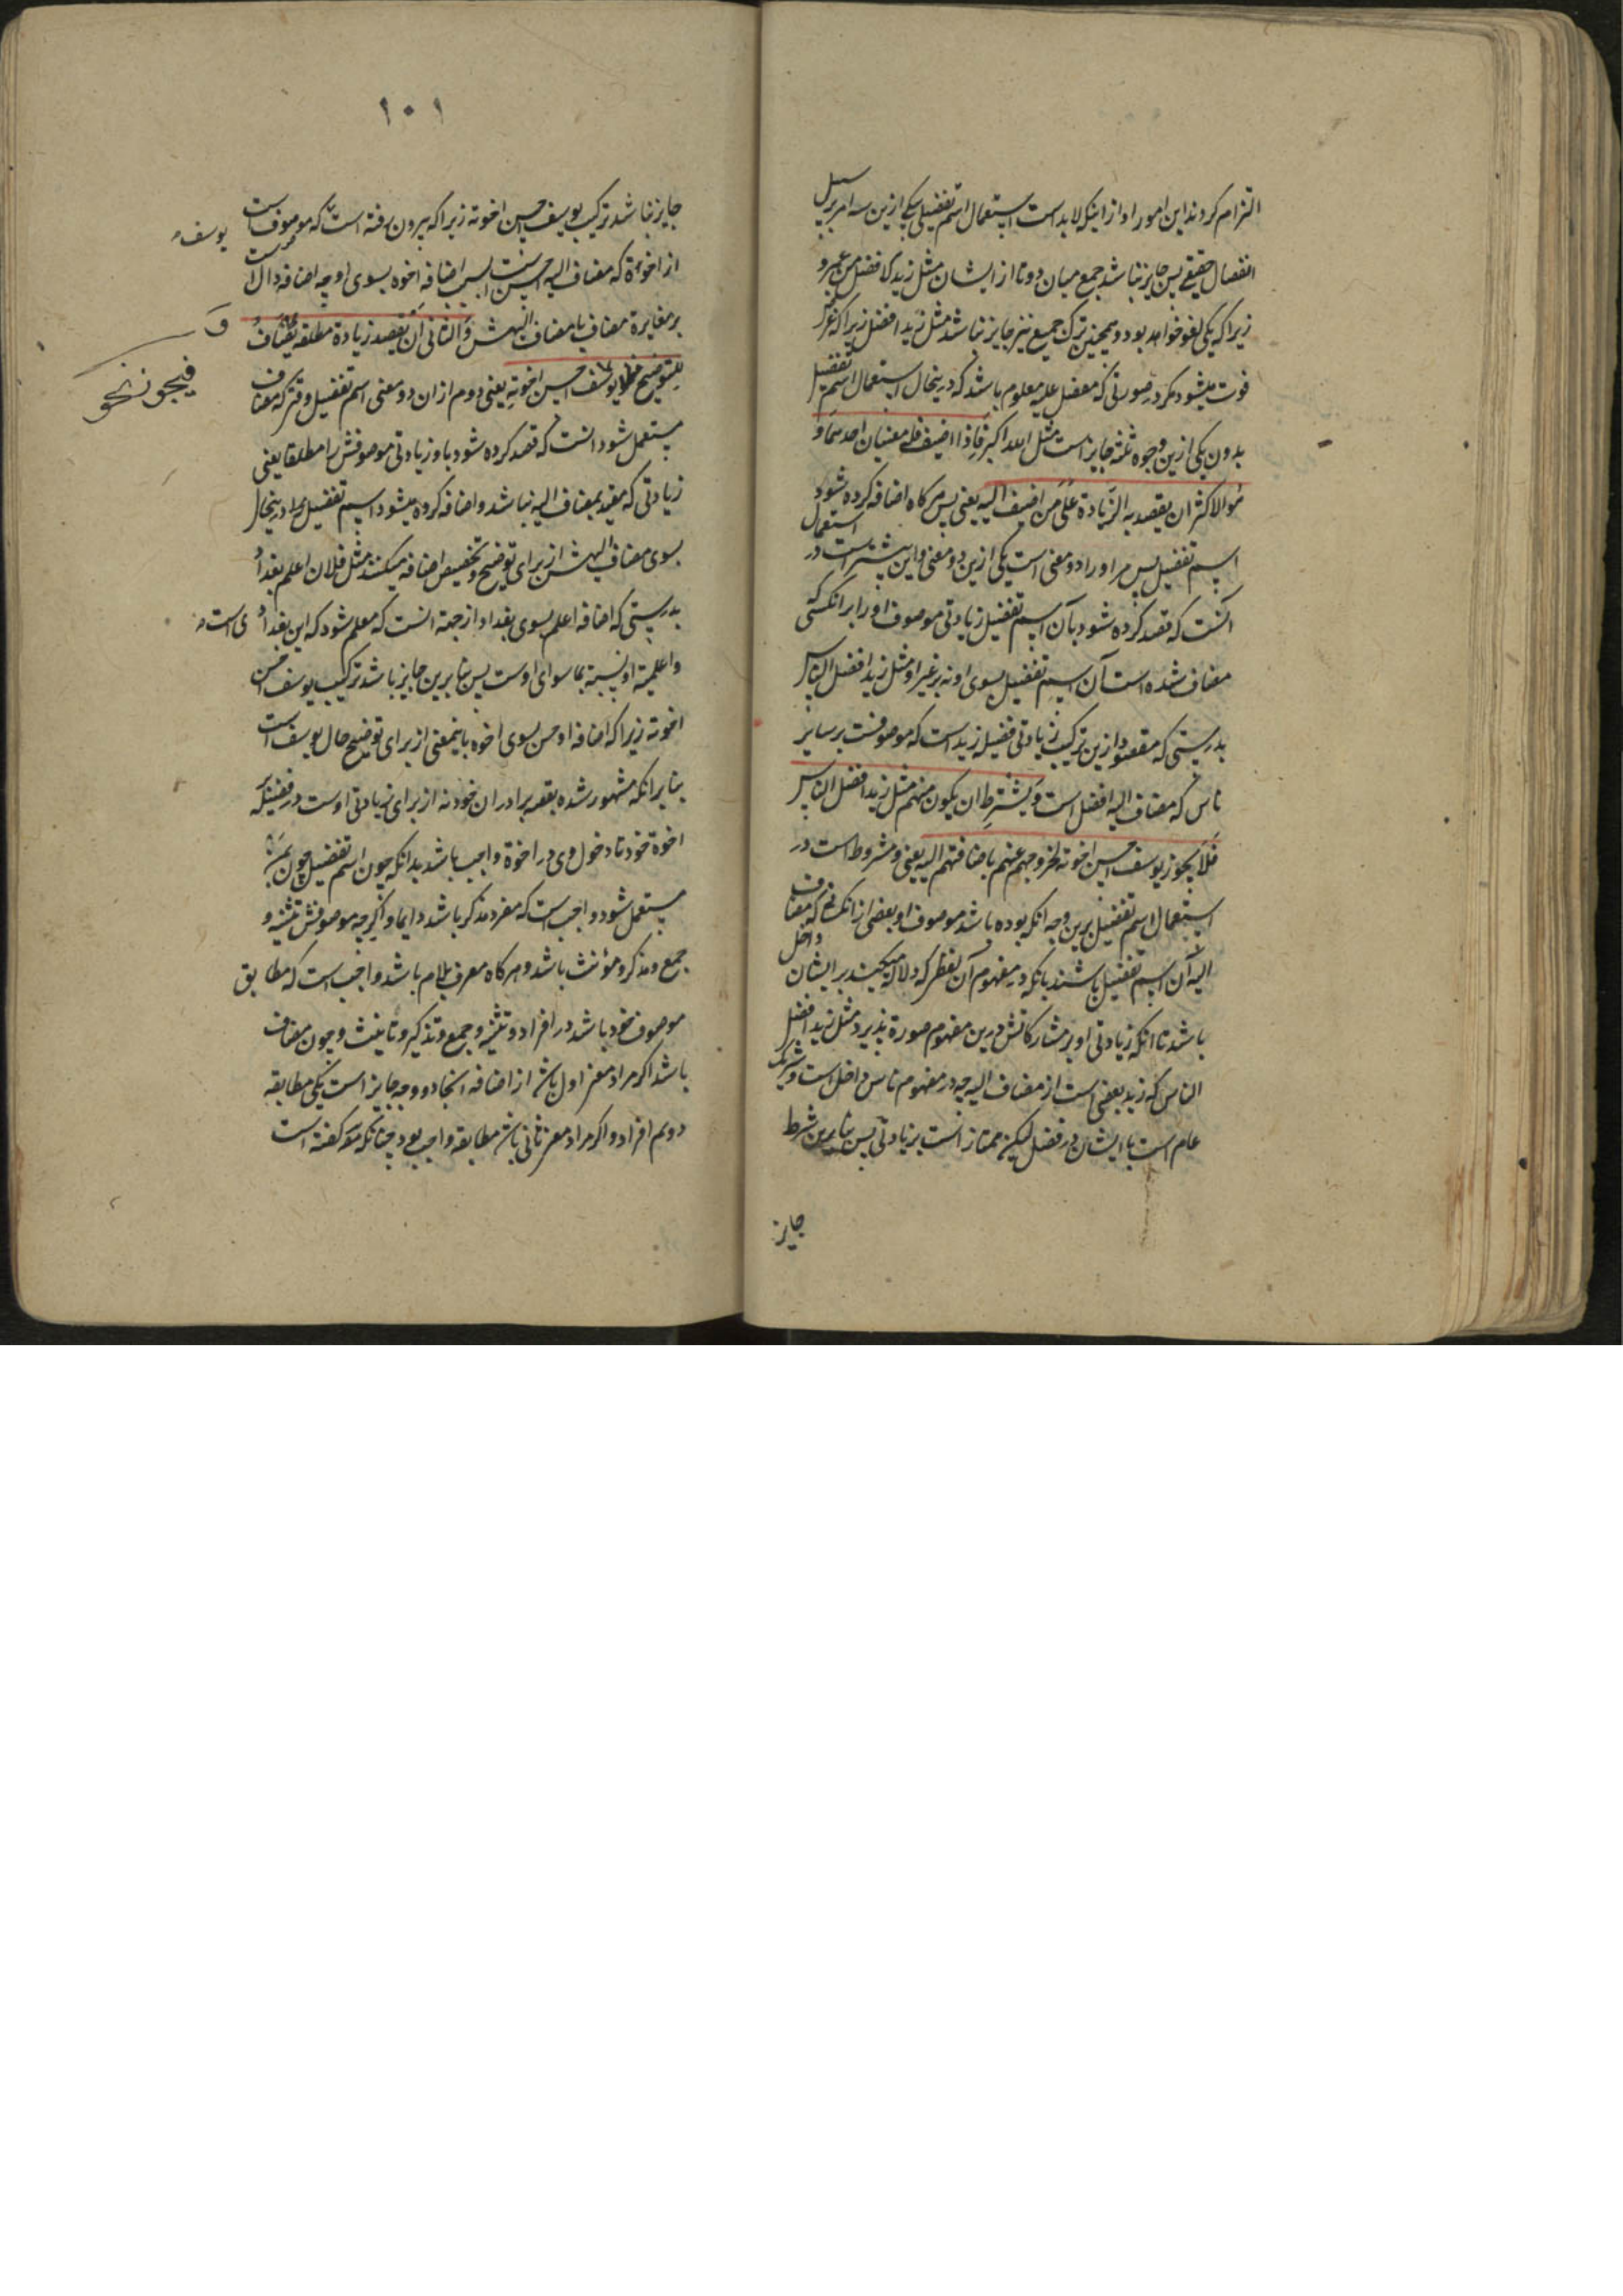 التزام کردند این امور را و از اینکه لابد است استعمال اسم تفضیل یکی ازین سه امر بر سبیل
انفصال حقیقی پس جایز نباشد جمع میان دو تا از ایشان مثل زید الافضل من عمرو
زیرا که یکی لغو خواهد بود و همچنین ترک جمیع نیز جایز نباشد مثل زید افضل زیرا که غرض
فوت میشود مکر در صورتی که مفضل علیه معلوم باشد که درینحال استعمال اسم تفضیل
بدون یکی ازین وجوه ثلثه جایز است مثل الله اکبر فاذا اضیف فله معنیان احدهما و
هو الاکثر ان یقصد به الزیادة علی من اضیف الیه یعنی پس هرکاه اضافه کرده شود
اسم تفضیل پس مر او را دو معنی است یکی ازین دو معنی و این بیشتر است در استعمال
آنست که قصد کرده شود بآن اسم تفضیل زیادتی موصوف او را بر انکسی که
مضاف شده است آن اسم تفضیل بسوی او نه بر غیر او مثل زید افضل الناس
بدرستی که مقصود ازین ترکیب زیادتی فضیلة زید است که موصوفست بر سایر
ناس که مضاف الیه افضل است و یشترط ان یکون منهم مثل زید افضل الناس
فلا یجوز یوسف احسن اخوته لخروجهم عنهم باضافتهم الیه یعنی و مشروط است در
استعمال اسم تفضیل برین وجه انکه بوده باشد موصوف او بعضی از انکسانی که مضاف
الیه آن اسم تفضیل باشند بانکه در مفهوم آن لفظی که دلالة میکند بر ایشان داخل
باشد تا انکه زیادتی او بر مشارکانش درین مفهوم صورة پذیرد مثل زید افضل
الناس که زید بعضی است از مضاف الیه چه در مفهوم ناس داخل است و شریک
عام است با ایشان در فضل لیکن ممتاز است بزیادتی پس بنابرین شرط
جایز
١٠١
جایز نباشد ترکیب یوسف احسن اخوته زیرا که بیرون رفته است که موصوف است
یوسف
از اخوة که مضاف الیه احسن است بسبب اضافه اخوه بسوی او چه اضافه دال است
بر مغایرة مضاف با مضاف الیهش و الثانی ان یقصد زیادة مطلقة و یضاف
للتوضیح یوسف احسن اخوته یعنی دوم از ان دو معنی اسم تفضیل وقتی که مضاف
فیجوز نحو
مستعمل شود انست که قصد کرده شود باو زیادتی موصوفش را مطلقا یعنی
زیادتی که مقید بمضاف الیه نباشد و اضافه کرده میشود اسم تفضیل را درینحال
بسوی مضاف الیهش از برای توضیح و تخصیص اضافه میکنند مثل فلان اعلم بغداد
بدرستی که اضافه اعلم بسوی بغداد از جهة انست که معلم شود که این بغدادی است
و اعلمیة او نسبة بماسوای اوست پس بنابرین جایز باشد ترکیب یوسف احسن
اخوته زیرا که اضافه احسن بسوی اخوه باینمعنی از برای توضیح حال یوسف است
بنابر انکه مشهور شده بقصه برادران خود نه از برای زیادتی اوست در فضیلة بر
اخوة خود تا دخول وی در اخوة واجب باشد بدانکه چون اسم تفضیل چون بمن
مستعمل شود واجب است که مفرد مذکر باشد دایما و اکرچه موصوفش تثنیه و
جمع و مذکر و مؤنث باشد و هرکاه معرف بلام باشد واجب است که مطابق
موصوف خود باشد در افراد و تثنیه و جمع و تذکیر و تانیث و چون مضاف
باشد اکر مراد معنی اول باشد از اضافه انجا دو وجه جایز است یکی مطابقه
دویم افراد و اکر مراد معنی ثانی باشد مطابقه واجب بود چنانکه مؤ کفته است